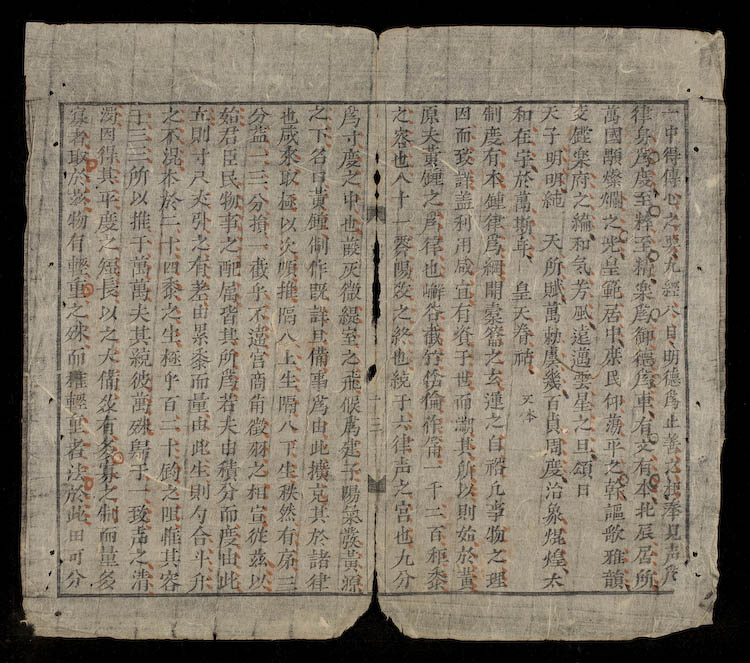 一中得傳心之要九經八目明德爲止善之
律身爲度至粹至精樂爲御德爲車有文有本北辰居所
萬國顒燦爛之光皇範居中庶民仰蕩平之幹謳歌雅韻
變鏗樂府之綸和氣芳風遠邁雲星之旦頌曰
天子明明純 天所賦萬勅虞幾百貞周度治象煌煌太
和在宇於萬斯年 皇天眷祜 又本
制度有本鍾律爲綱開橐籥之玄運之自裕凡事物之理
因而致詳盖利用咸宜有資于世而溯其所以則始於黃
原夫黃鍾之爲律也嶰谷截竹伶倫作筩一千二百秬黍
之容也八十一零陽數之終也統于六律吉之宮也九分
爲寸度之中也葭灰微緹室之飛候爲建子陽氣發黃源
之下名曰黃鍾制作既詳旦備事爲由此擴充其於諸律
也咸乘取極以次順推隔八上生隔八下生秩然有序三
分益一三分損一截乎不違宮商角徵羽之相宣從茲以
始君臣民物事之配屬皆其所爲若夫由積分而度由此
立則寸尺丈引之有差由累黍而量由此生則勺合斗升
之不混本於二十四黍之生極乎百二十鈞之阻權其容
十三三所以推于萬萬夫其統彼萬殊歸于一致吉之清
濁因得其平度之短長以之大備數有多寡之制而量多
寡者取於茲物有輕重之殊而權輕重者法於此田可分